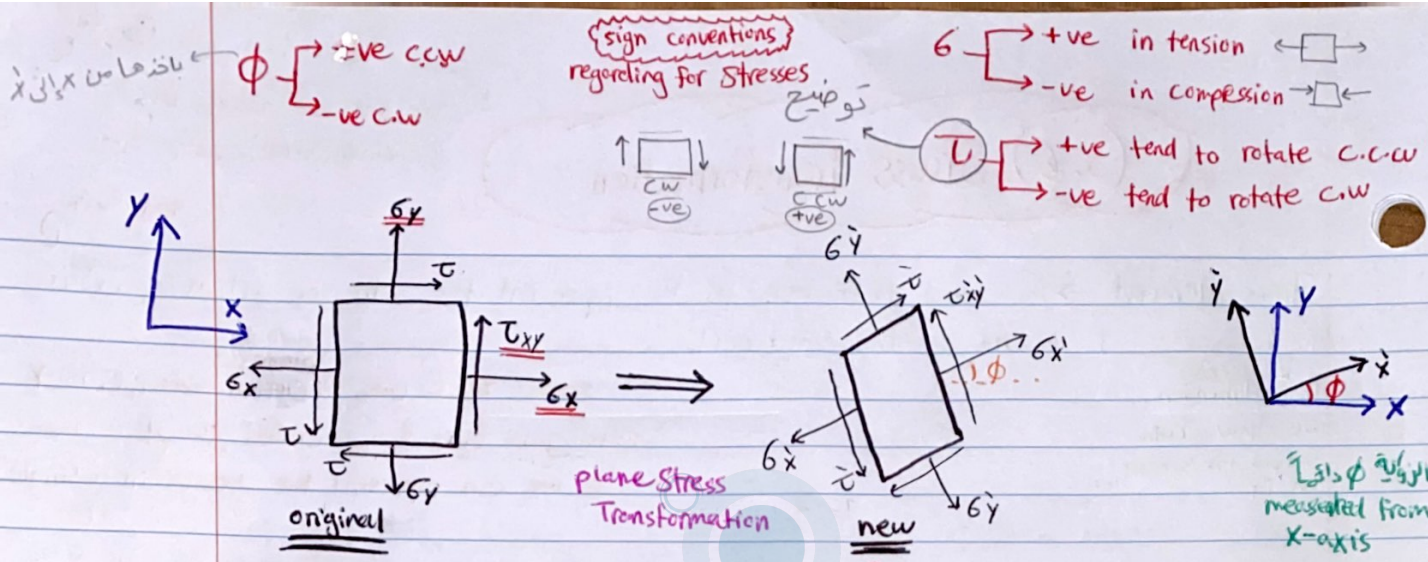 بأخذها من x إلى x̀
ϕ
+ve C.C.W
-ve C.W
{sign conventions}
regarding for stresses
توضيح
cw
-ve
C CW
+ve
6
+ve in tension
-ve in compession
τ
+ve tend to rotate C.C.W
-ve tend to rotate C.W
Y
X
6y
τ
τxy
6x
6x
τ
τ
6y
original
plane Stress
Transformation
6ỳ
τ̀
τx̀ỳ
6x̀
ϕ
6x̀
τ̀
6ỳ
new
Ỳ
Y
x̀
ϕ
X
الزاوية ϕ دائماً
measurated from
X-axis